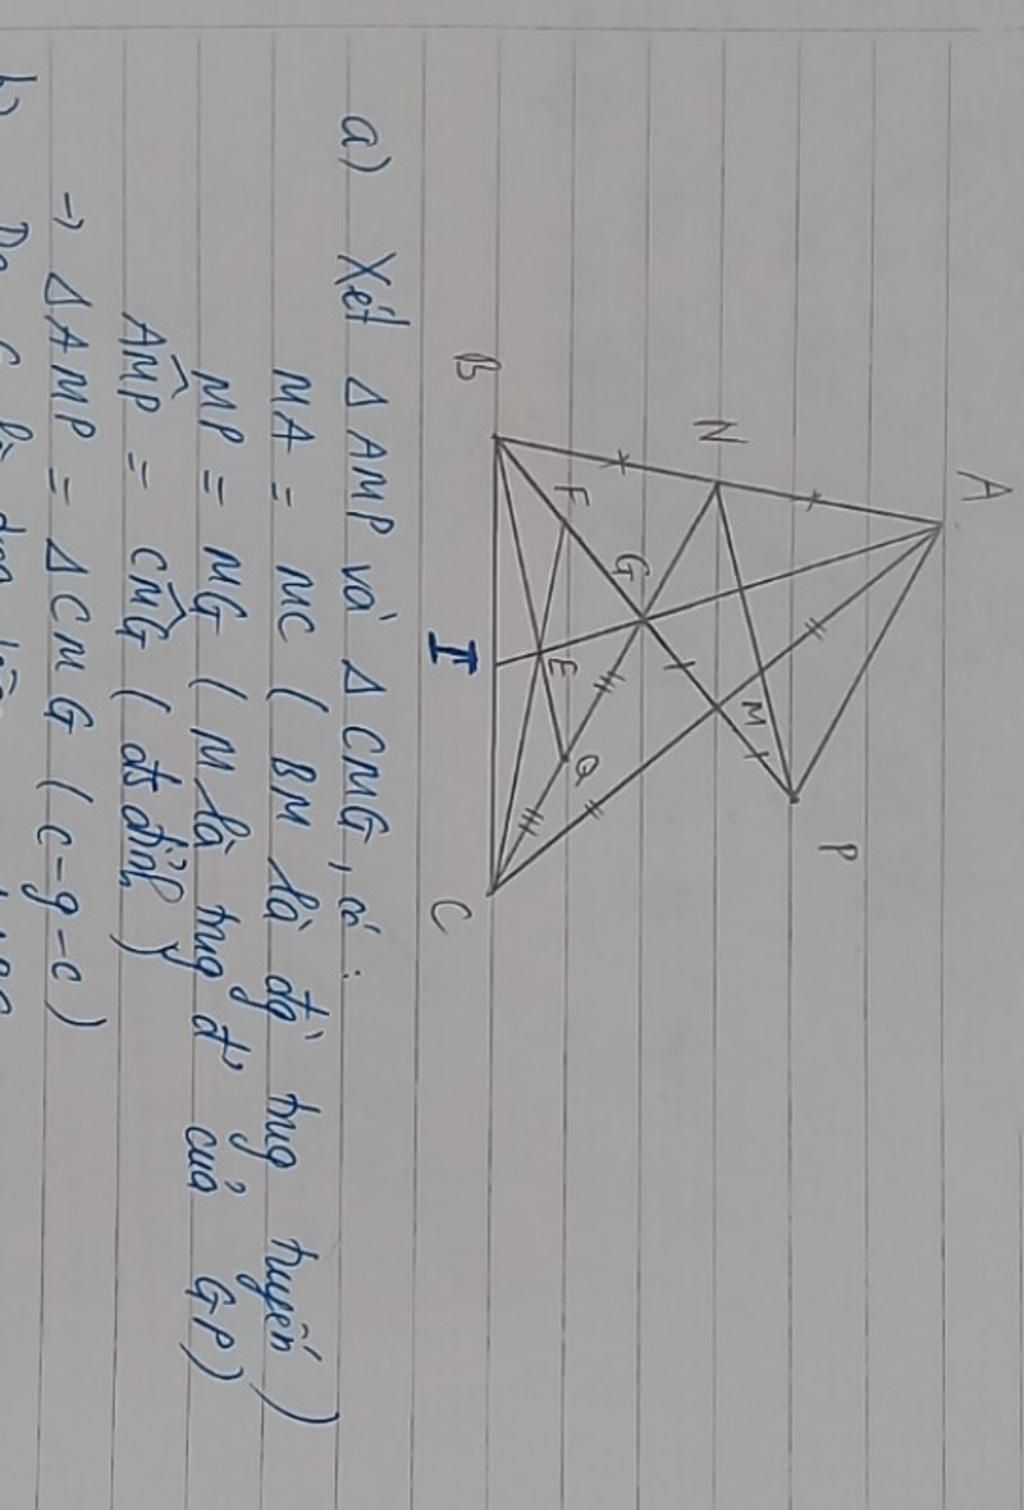 A
N
P
M
G
F
Q
E
B
I
C
a) Xét Δ AMP và Δ CMG, có :
MA = MC ( BM là đg` tug tuyến )
MP = MG ( M là tug đ' của GP )
AM̂P = CM̂G ( đ đỉnh )
→ Δ AMP = Δ CMG ( c-g-c )
b)